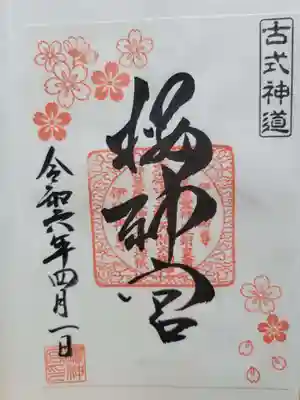 古式神道
桜神宮
令和六年四月一日